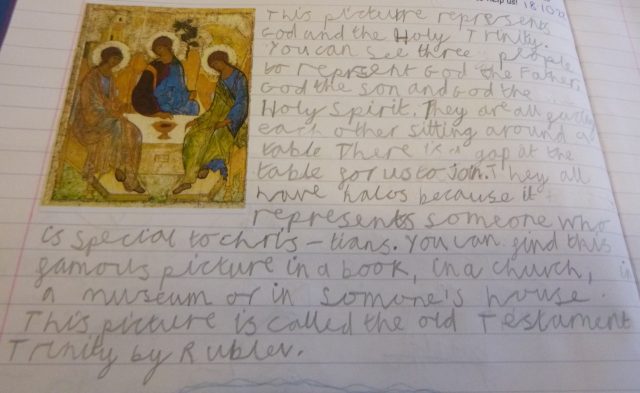 help us!
This picture represents
God and the Holy Trinity.
You can see three people
to represent God the Father,
God the son and God the
Holy Spirit. They are all
each other sitting around a
table There is a gap at the
table for us to join. They all
have halos because it
represents someone who
is special to chris-tians. You can find this
famous picture in a book, in a church, in
a museum or in somone's house.
This picture is called the old Testament
Trinity by Rublev.